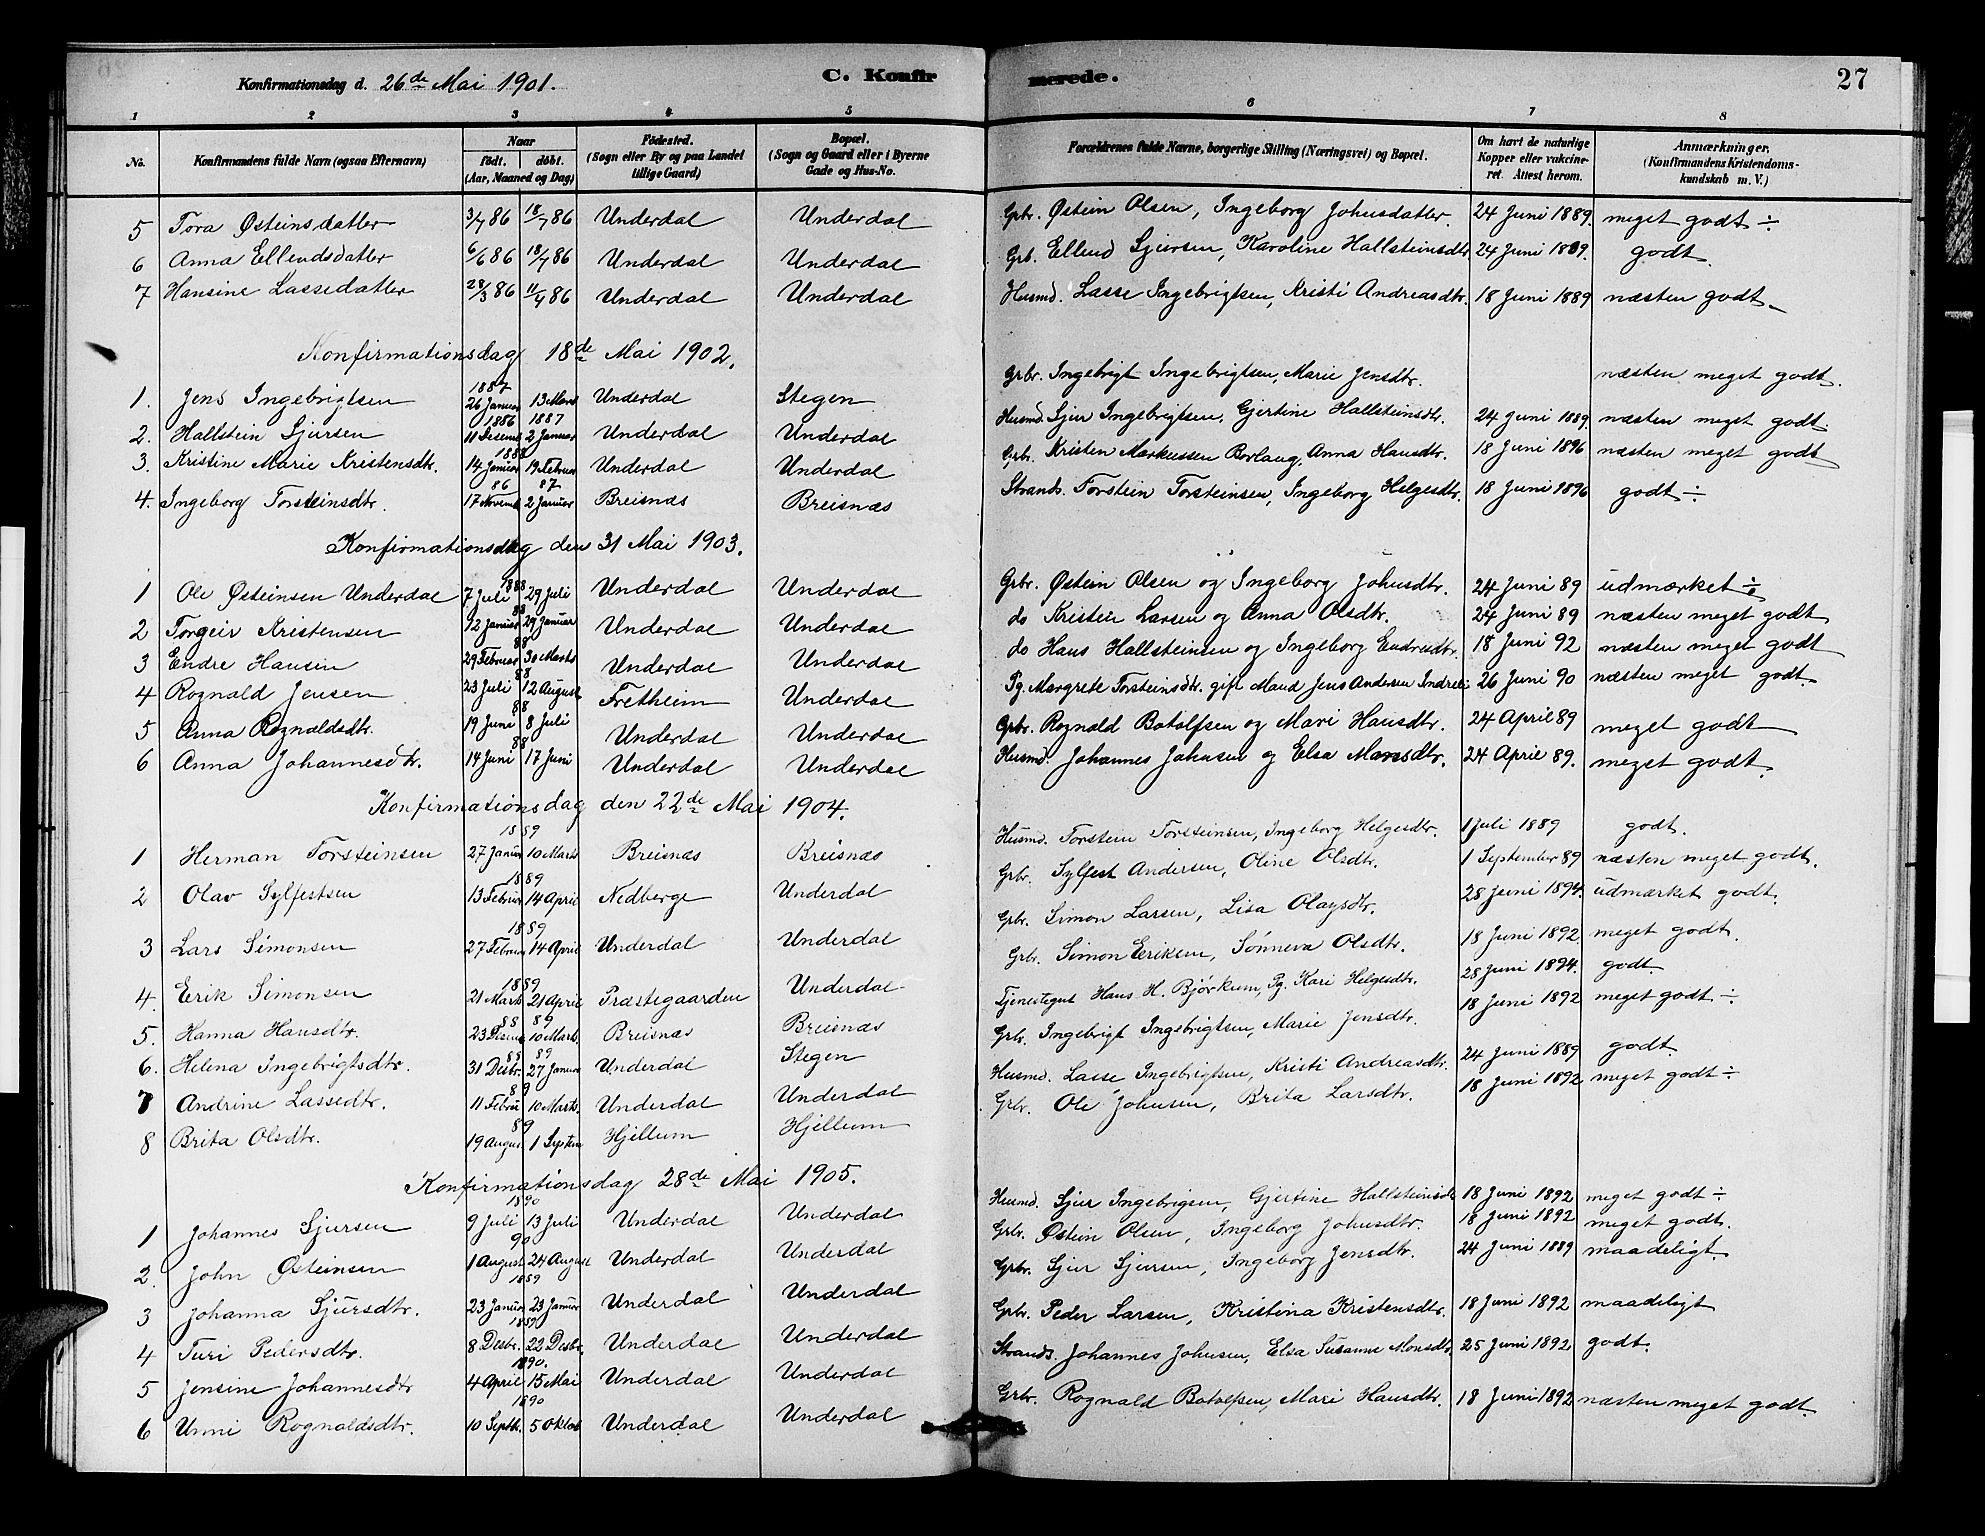 Konfirmationsdag d. 26de Mai 1901. C. Konfir merede. 27
1 2 3 4 5 6 7 8
No. Konfirmandens fulde Navn (ogsaa Efternavn) Naar født. døbt. (Aar, Maaned og Dag) Fødested. (Sogn eller By og paa Landet tillige Gaard) Bopæl. (Sogn og Gaard eller i Byerne Gade og Hus-No. Forældrenes fulde Navne, borgerlige Stilling (Næringsvei) og Bopæl. Om havt de naturlige Kopper eller vakcineret. Attest herom. Anmærkninger, (Konfirmandens Kristendomskundskab m. V.)
5 Tora Østeinsdatter 3/7 86 18/7 86 Underdal Underdal Grbr. Østein Olsen, Ingeborg Johnsdatter 24 Juni 1889. meget godt ÷
6 Anna Ellendsdatter 6/6 86 18/7 86 Underdal Underdal Grb. Ellend Sjursen, Karoline Hallsteinsdtr 24 Juni 1889. godt.
7 Hansine Lassedatter 28/3 86 11/4 86 Underdal Underdal Husmd. Lasse Ingebrigtsen, Kristi Andreasdtr. 18 Juni 1889 næsten godt
Konfirmationsdag 18de Mai 1902.
1. Jens Ingebrigtsen 1887 26 Januar 13 Marts Underdal Stegen Grbr. Ingebrigt Ingebrigtsen, Marie Jensdtr. næsten meget godt.
2. Hallstein Sjursen 1886 11 Desemb 1887 2 Januar Underdal Underdal Husmd. Sjur Ingebrigtsen, Gjertine Hallsteinsdtr. 24 Juni 1889. næsten meget godt
3. Kristine Marie Kristensdtr. 1888 14 Januar 19 Februar Underdal Underdal Grb. Kristen Markussen Borlaug, Anna Hansdtr. 18 Juni 1896 næsten meget godt
4. Ingeborg Torsteinsdtr. 86 17 Novemb 87 2 Januar Breisnæs Breisnæs Strands. Torstein Torsteinsen, Ingeborg Helgesdtr. 18 Juni 1896 godt ÷
Konfirmationsdag den 31 Mai 1903.
1 Ole Østeinsen Underdal 1888 7 Juli 29 Juli Underdal Underdal Grbr. Østein Olsen og Ingeborg Johnsdtr. 24 Juni 89 udmærket ÷
2 Torgeir Kristensen 88 12 Januar 29 Januar Underdal Underdal do Kristen Larsen og Anna Olsdtr. 24 Juni 89 næsten meget godt
3 Endre Hansen 88 29 Februar 30 Marts Underdal Underdal do Hans Hallsteinsen og Ingeborg Endresdtr. 18 Juni 92 næsten meget godt
4 Rognald Jensen 88 23 Juli 12 August Fretheim Underdal Pg. Margrete Torsteinsdtr. gift Mand Jens Andersen Indreli 26 Juni 90 næsten meget godt.
5 Anna Rognaldsdtr. 88 19 Juni 8 Juli Underdal Underdal Grbr. Rognald Botolfsen og Mari Hansdtr. 24 April 89 meget godt
6 Anna Johannesdtr. 88 14 Juni 17 Juni Underdal Underdal Husmd. Johannes Johnsen og Elsa Monsdtr. 24 April 89. meget godt.
Konfirmationsdag den 22de Mai 1904.
1 Herman Torsteinsen 1889 27 Januar 10 Marts Breisnæs Breisnæs Husmd. Torstein Torsteinsen, Ingeborg Helgesdtr. 1 Juli 1889 godt.
2 Olav Sylfestsen 1889 13 Februar 14 April Nedberge Underdal Grbr. Sylfest Andersen, Oline Olsdtr. 1 September 89 næsten meget godt.
3 Lars Simonsen 1889 27 Februar 14 April Underdal Underdal Grbr. Simon Larsen, Lisa Olavsdtr. 28 Juni 1894. udmærket godt.
4. Eerik Simonsen 1889 21 Marts 21 April Præstegaarden Underdal Grb. Simon Eeriksen, Sønneva Olsdtr. 18 Juni 1892. meget godt.
5. Hanna Hansdtr. 88 23 Desemb 89 10 Marts. Breisnæs Breisnæs Tjenestegut Hans H. Bjørkum, Pg. Kari Helgesdtr. 28 Juni 1894. godt
6. Helena Ingebrigtsdtr. 88 31 Desbr. 89 27 Januar Underdal Stegen Grbr. Ingebrigt Ingebrigtsen, Marie Jensdtr. 18 Juni 1892 meget godt ÷
7 Andrine Lassedtr. 89 11 Februar 10 Marts. Underdal Underdal Husmd. Lasse Ingebrigtsen, Kristi Andreasdtr. 24 Juni 1889 godt.
8 Brita Olsdtr. 89 19 August 1 Septem Hjellum Hjellum Grbr. Ole Johnsen, Brita Larsdtr. 18 Juni 1892 meget godt ÷
Konfirmationsdag 28de Mai 1905.
1 Johannes Sjursen 1890 9 Juli 13 Juli Underdal Underdal Husmd. Sjur Ingebrigsen, Gjertine Hallsteinsdtr 18 Juni 1892 meget godt ÷
2. John Østeinsen 90 1 August 24 August Underdal Underdal Grbr. Østein Olsen, Ingeborg Johnsdtr. 18 Juni 1892 meget godt.
3 Johanna Sjursdtr. 1889 23 Januar 23 Januar Underdal Underdal Grbr. Sjur Sjursen, Ingeborg Jensdtr. 24 Juni 1889 maadeligt
4 Turi Pedersdtr. 1889 8 Desbr. 22 Desbr. Underdal Underdal Grbr. Peder Larsen, Kristina Kristensdtr. 18 Juni 1892 maadeligt
5 Jensine Johannesdtr 1890. 4 April 15 Mai Underdal Underdal Strands. Johannes Johnsen, Elsa Susanne Monsdtr. 25 Juni 1892 godt.
6 Unni Rognaldsdtr. 1890 10 Septbr. 5 Oktob Underdal Underdal Grbr. Rognald Botolfsen, Mari Hansdtr. 18 Juni 1892 næsten meget godt.